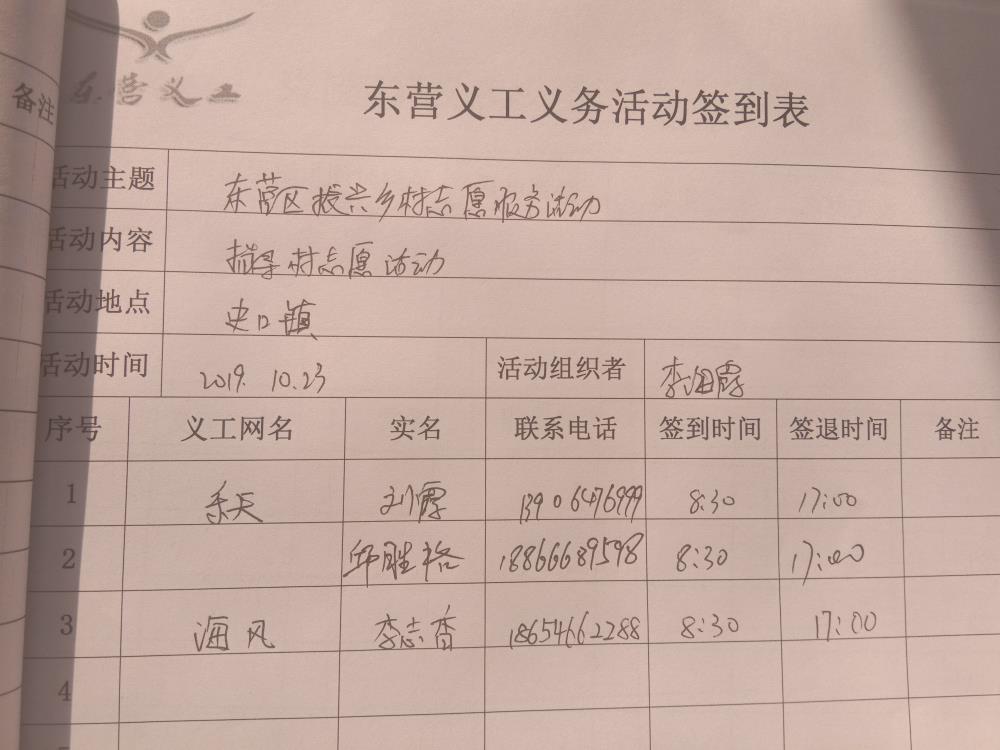 备注
东营义工
东营义工义务活动签到表
活动主题 东营区振兴乡村志愿服务活动
活动内容 指导村志愿活动
活动地点 史口镇
活动时间 2019. 10.23 活动组织者 李海霞
序号 义工网名 实名 联系电话 签到时间 签退时间 备注
1 秋天 刘霞 13906476999 8:30 17:00
2 邱胜格 18866689598 8:30 17:00
3 海风 李志香 18654662288 8:30 17:00
4